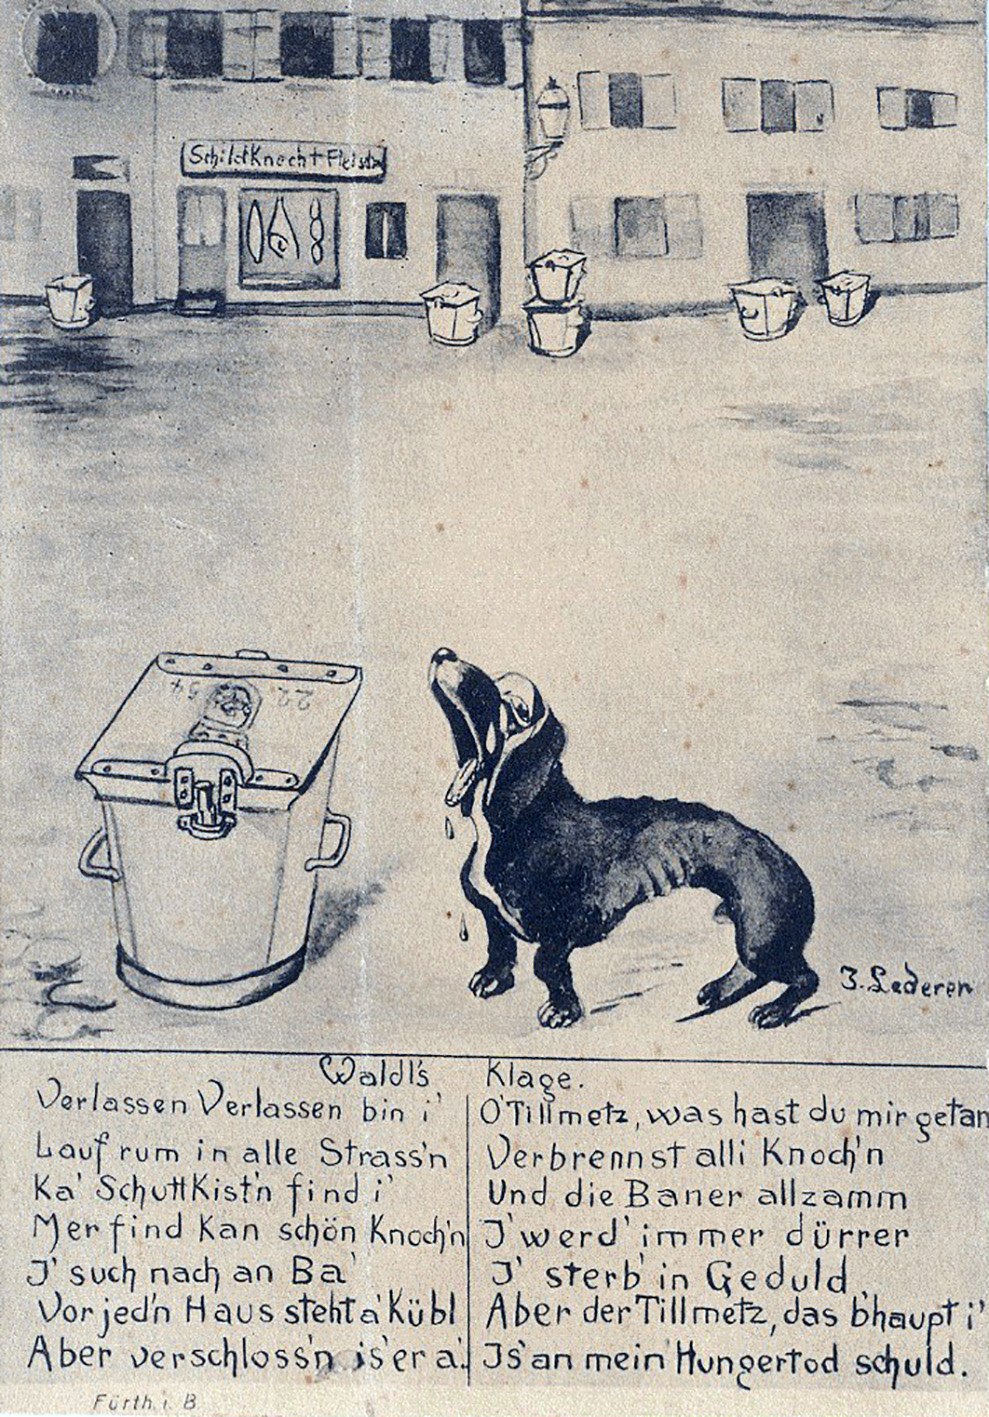 Schildknecht Fleisch
22 54
J. Lederer
Waldl's Klage.
Verlassen Verlassen bin i'
Lauf rum in alle Strass'n
Ka' Schuttkist'n find i'
Mer find kan schön Knoch'n
I' such nach an Ba'
Vor jed'n Haus steht a' Kübl
Aber verschloss'n is' er a'.
O' Tillmetz, was hast du mir getan
Verbrennst alli Knoch'n
Und die Baner allzamm
I' werd' immer dürrer
I' sterb' in Geduld,
Aber der Tillmetz, das b'haupt i'
Is' an mein Hungertod schuld.
Fürth i. B.